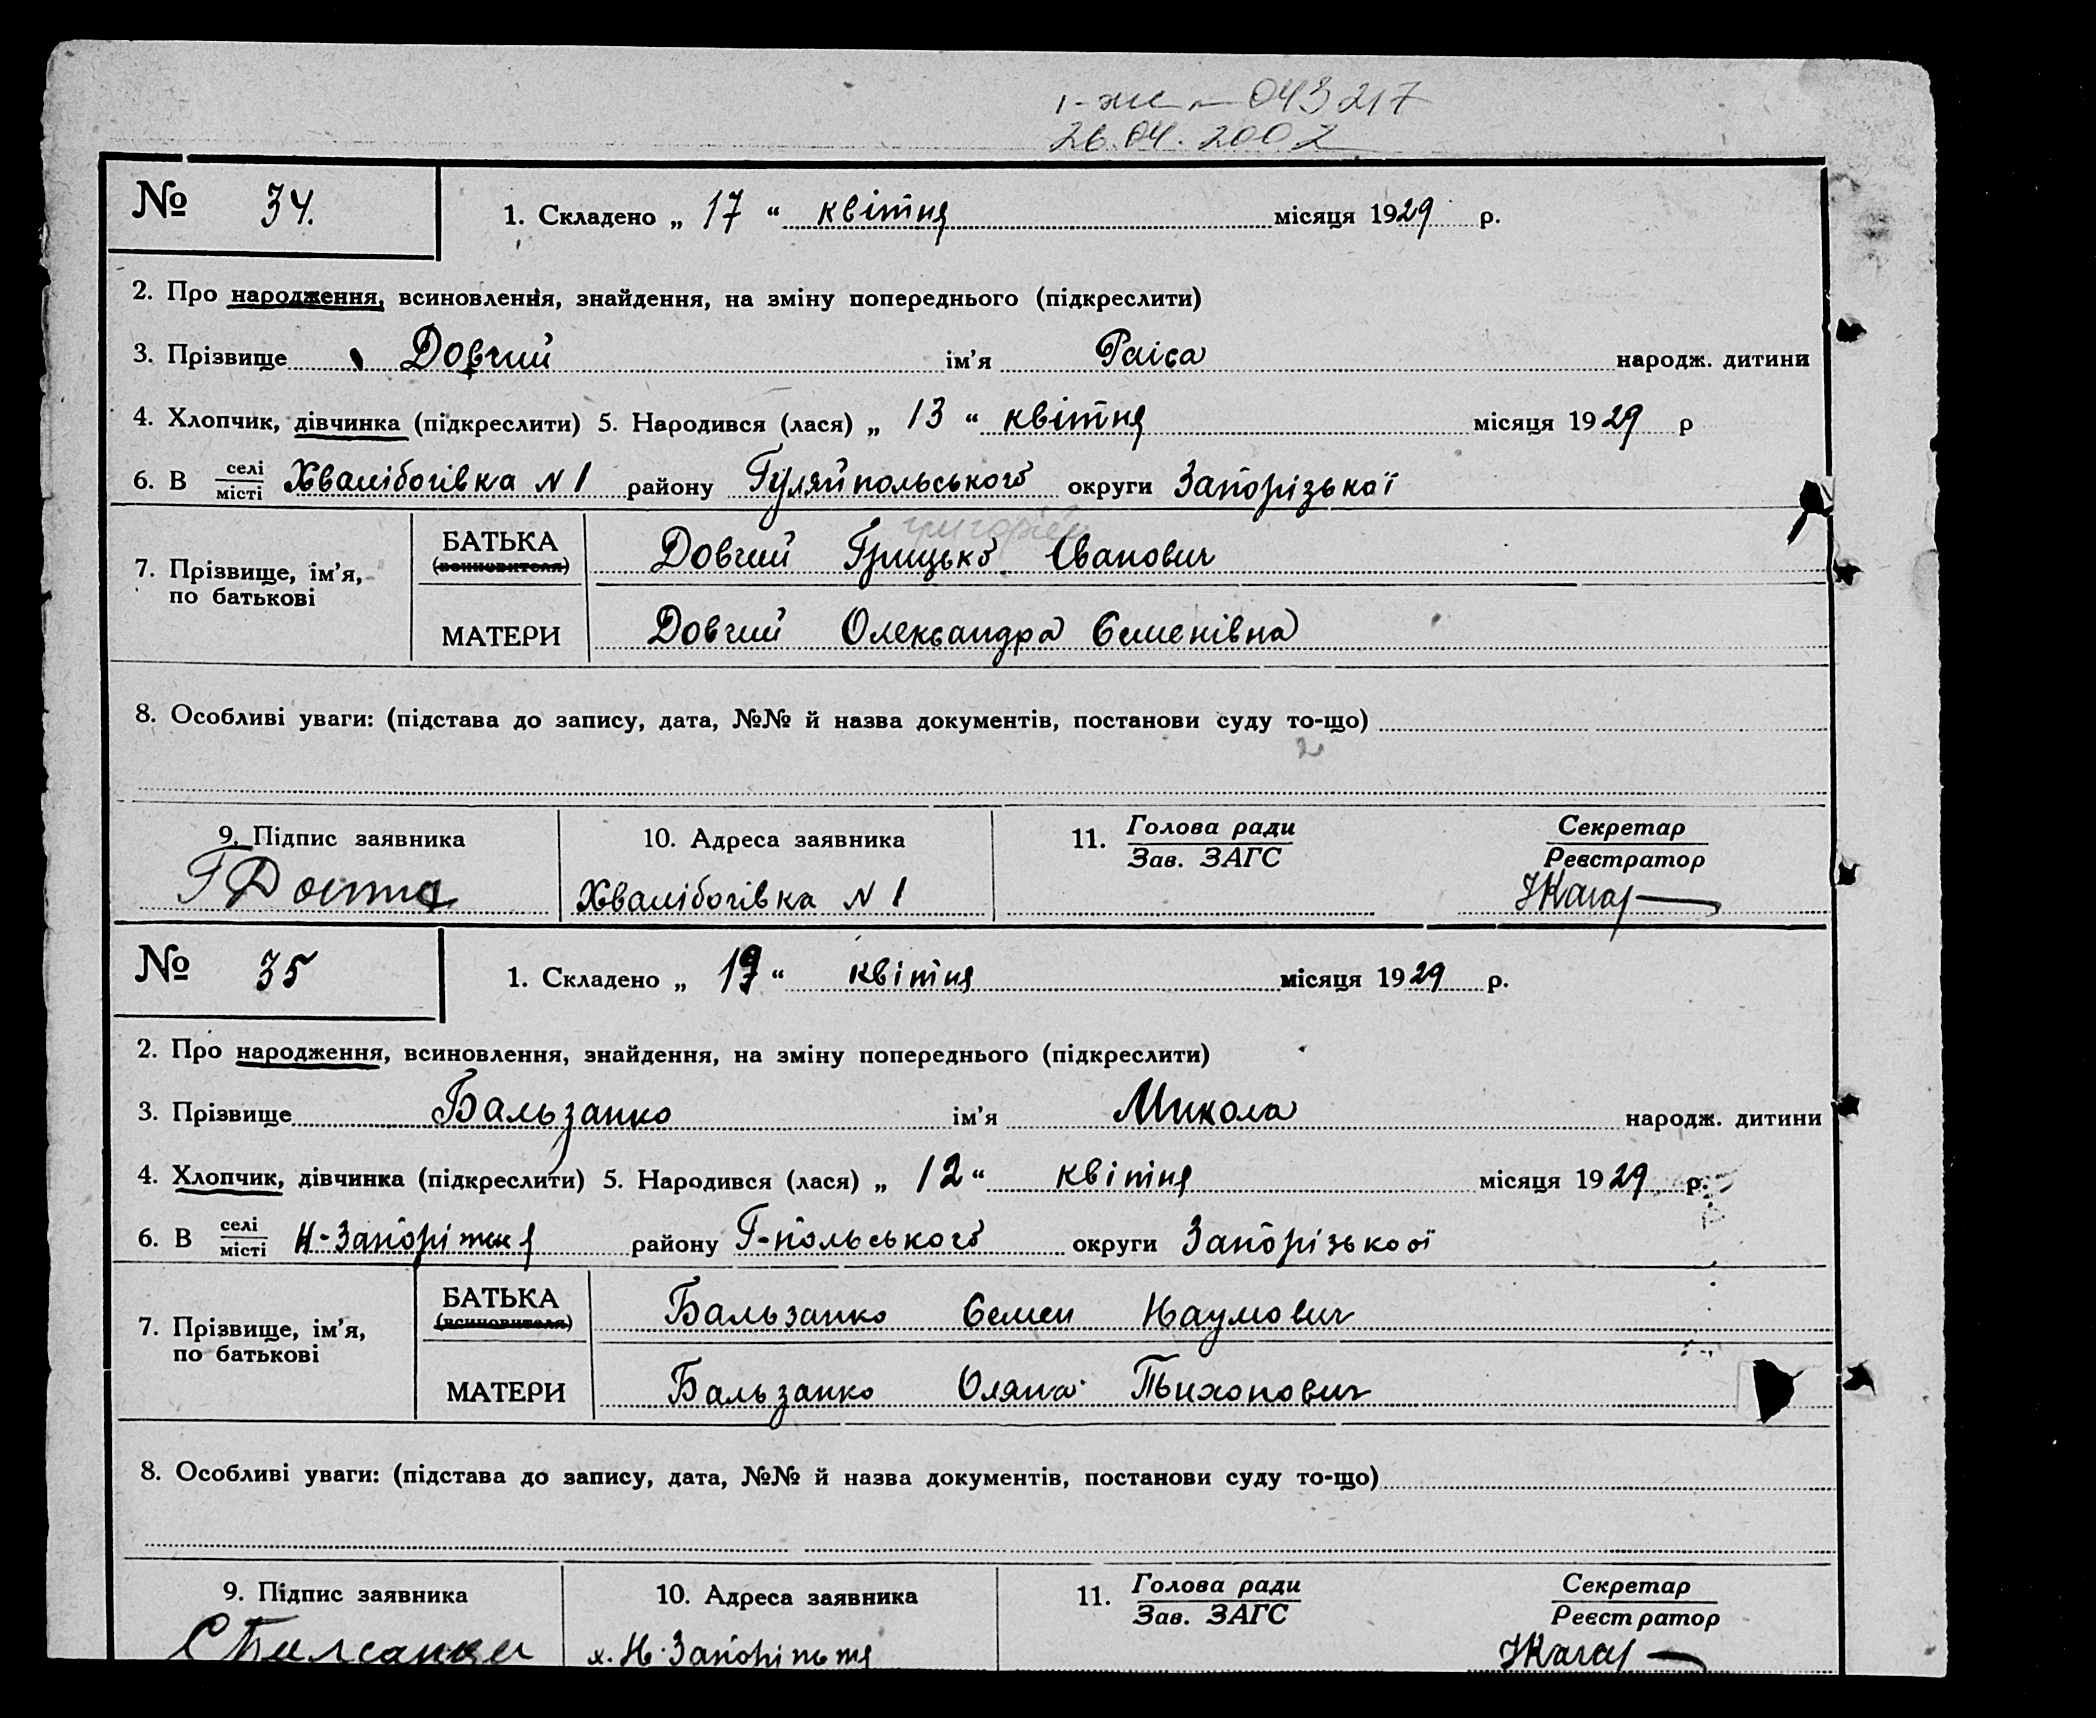 043217
26.04.2002
№ 34. 1. Складено „ 17 “ квітня місяця 1929 р.
2. Про народження, всиновлення, знайдення, на зміну попереднього (підкреслити)
3. Прізвище Довгий ім’я Раіса народж. дитини
4. Хлопчик, дівчинка (підкреслити) 5. Народився (лася) „ 13 “ квітня місяця 1929 р
6. В селі/місті Хвалібогівка N 1 району Гуляйпольського округи Запорізької
григорій
7. Прізвище, ім’я, по батькові БАТЬКА (всиновителя) Довгий Грицько Іванович
МАТЕРИ Довгий Олександра Семенівна
8. Особливі уваги: (підстава до запису, дата, №№ й назва документів, постанови суду то-що)
2
9. Підпис заявника 10. Адреса заявника 11. Голова ради/Зав. ЗАГС Секретар/Реєстратор
Хвалібогівка N 1
№ 35 1. Складено „ 19 “ квітня місяця 1929 р.
2. Про народження, всиновлення, знайдення, на зміну попереднього (підкреслити)
3. Прізвище Бальзанко ім’я Микола народж. дитини
4. Хлопчик, дівчинка (підкреслити) 5. Народився (лася) „ 12 “ квітня місяця 1929 р.
6. В селі/місті Н-Запоріжжя району Г-польського округи Запорізької
7. Прізвище, ім’я, по батькові БАТЬКА (всиновителя) Бальзанко Семен Наумович
МАТЕРИ Бальзанко Оляна Тихонович
8. Особливі уваги: (підстава до запису, дата, №№ й назва документів, постанови суду то-що)
9. Підпис заявника 10. Адреса заявника 11. Голова ради/Зав. ЗАГС Секретар/Реєстратор